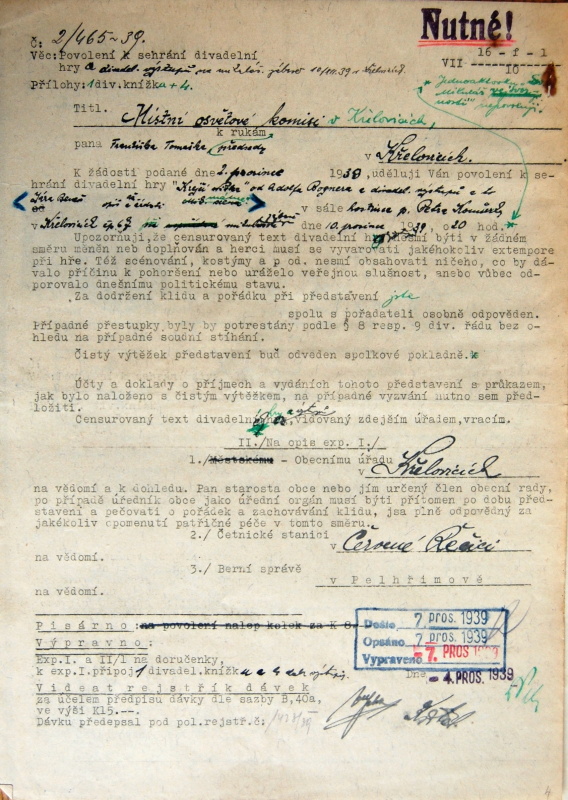 Nutné!
Č: 2/465-39.
16 - f - 1
VII 10
Věc: Povolení k sehrání divadelní
hry a divadel. výstupů
Přílohy: 1 div. knížka + 4.
Titl.
Místní osvětové komisi v Křelovicích,
k rukám
pana Františka Tomaška, předsedy
v Křelovicích.
K žádosti podané dne 2. prosince 1939, uděluji Vám povolení k se-
hrání divadelní hry "Krejčí od Adolfa Bognera a divadel. výstupů
v sále hostince p. Petra
v Křelovicích čp. 67 dne 10. prosince 1939, o 20 hod.
Upozorňuji, že censurovaný text divadelní hry nesmí býti v žádném
směru měněn nebo doplňován a herci musí se vyvarovati jakéhokoliv extempore
při hře. Též scénování, kostýmy a p od. nesmí obsahovati ničeho, co by dá-
valo příčinu k pohoršení nebo uráželo veřejnou slušnost, anebo vůbec od-
porovalo dnešnímu politickému stavu.
Za dodržení klidu a pořádku při představení jste
spolu s pořadateli osobně odpověden.
Případné přestupky, byly by potrestány podle § 8 resp. 9 div. řádu bez o-
hledu na případné soudní stíhání.
Čistý výtěžek představení buď odveden spolkové pokladně.
Účty a doklady o příjmech a vydáních tohoto představení s průkazem,
jak bylo naloženo s čistým výtěžkem, na případné vyzvání nutno sem před-
ložiti.
Censurovaný text divadelní hry vidovaný zdejším úřadem, vracím.
II./Na opis exp. I./
1./Městskému - Obecnímu úřadu
v Křelovicích
na vědomí a k dohledu. Pan starosta obce nebo jím určený člen obecní rady,
po případě úředník obce jako úřední orgán musí býti přítomen po dobu před-
stavení a pečovati o pořádek a zachovávání klidu, jsa plně odpovědný za
jakékoliv opomenutí patřičné péče v tomto směru.
2./ Četnické stanici
v Červené Řečici
na vědomí.
3./ Berní správě
v Pelhřimově
na vědomí.
Pisárno: na povolení nalep kolek za K 8.
Výpravno:
Exp. I. a II/1 na doručenky,
k exp. I. připoj 1 divadel. knížku a 4
Videat rejstřík dávek
za účelem předpisu dávky dle sazby B, 40a,
ve výši K15.--.
Dávku předepsal pod pol. rejstř. č:
Došlo 7 PROS. 1939
Opsáno 7 PROS. 1939
Vypraveno -7. PROS. 1939
Dne -4. PROS. 1939
4